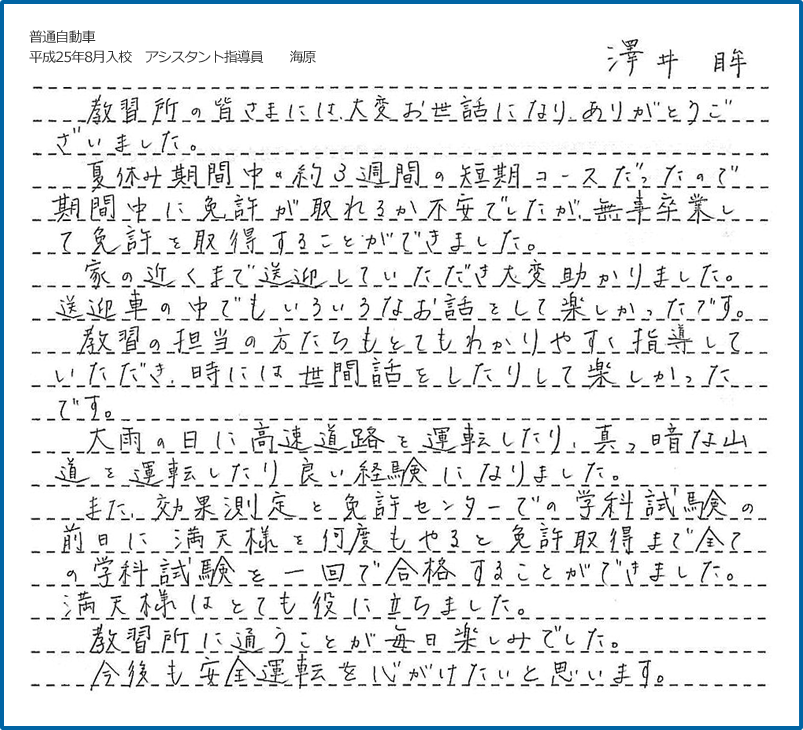 普通自動車
平成25年8月入校　アシスタント指導員　　海原
澤井 眸
教習所の皆さまには大変お世話になり、ありがとうご
ざいました。
夏休み期間中の約3週間の短期コースだったので
期間中に免許が取れるか不安でしたが、無事卒業し
て免許を取得することができました。
家の近くまで送迎していただき大変助かりました。
送迎車の中でもいろいろなお話をして楽しかったです。
教習の担当の方たちもとてもわかりやすく指導して
いただき、時には世間話をしたりして楽しかった
です。
大雨の日に高速道路を運転したり、真っ暗な山
道を運転したり良い経験になりました。
また、効果測定と免許センターでの学科試験の
前日に満天様を何度もやると免許取得まで全て
の学科試験を一回で合格することができました。
満天様はとても役に立ちました。
教習所に通うことが毎日楽しみでした。
今後も安全運転を心がけたいと思います。